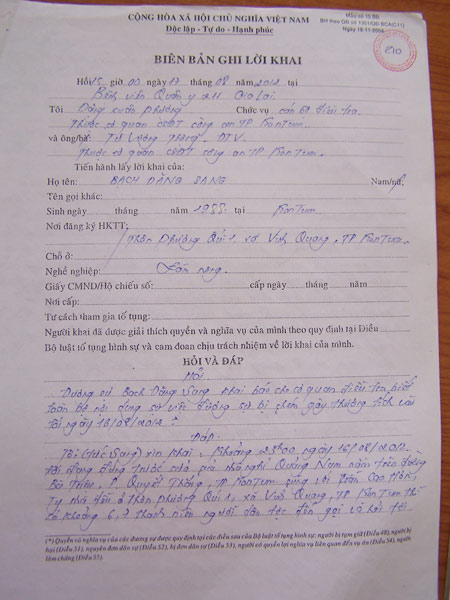 CỘNG HÒA XÃ HỘI CHỦ NGHĨA VIỆT NAM
Độc lập - Tự do - Hạnh phúc
Mẫu số 15 BB
BH theo QĐ số 1351/QĐ-BCA(C11)
Ngày 18-11-2004
210
BIÊN BẢN GHI LỜI KHAI
Hồi 15 giờ 00 ngày 17 tháng 08 năm 2012 tại
Bệnh viện Quân y 211 Gia Lai.
Tôi Đặng Xuân Phương Chức vụ cán bộ điều tra.
thuộc cơ quan CSĐT công an TP KonTum.
và ông/bà: Từ Lương ĐTV.
thuộc cơ quan CSĐT công an TP KonTum.
Tiến hành lấy lời khai của:
Họ tên: BẠCH ĐĂNG SANG Nam/nữ
Tên gọi khác:
Sinh ngày tháng năm 1988 tại KonTum
Nơi đăng ký HKTT:
thôn Phương Quí 1, xã Vinh Quang, TP KonTum.
Chỗ ở:
Nghề nghiệp: Làm nông.
Giấy CMND/Hộ chiếu số: cấp ngày tháng năm
Nơi cấp:
Tư cách tham gia tố tụng:
Người khai đã được giải thích quyền và nghĩa vụ của mình theo quy định tại Điều
Bộ luật tố tụng hình sự và cam đoan chịu trách nhiệm về lời khai của mình.
HỎI VÀ ĐÁP
Hỏi
Đương sự Bạch Đăng Sang khai báo cho cơ quan điều tra biết
toàn bộ nội dung sự việc đương sự bị chém gây thương tích vào
tối ngày 16/08/2012?
Đáp:
Tôi (tức Sang) xin khai, khoảng 23h00, ngày 16/08/2012.
tôi đang đứng trước cửa nhà nghỉ Quảng Nam nằm trên đường
P Quyết Thắng, TP KonTum cùng với
nhà đều ở thôn Phương Quí 1, xã Vinh Quang, TP KonTum thì
có khoảng 6, 7 thanh niên người dân tộc đến gọi và hỏi tôi.
(*) Quyền và nghĩa vụ của các đương sự được quy định tại các điều sau của Bộ luật tố tụng hình sự: người bị tạm giữ (Điều 48), người bị
hại (Điều 51), nguyên đơn dân sự (Điều 52), bị đơn dân sự (Điều 53), người có quyền lợi nghĩa vụ liên quan đến vụ án (Điều 54), người
làm chứng (Điều 55).